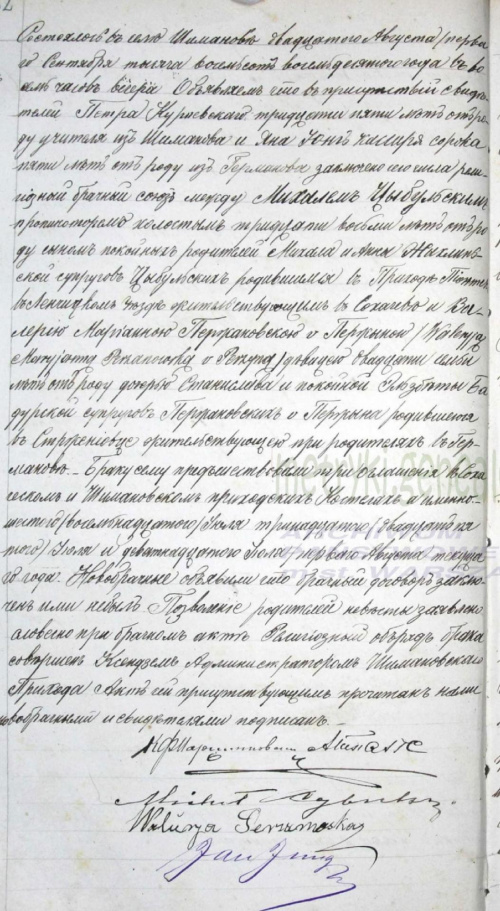 Состоялось въ селѣ Шимановѣ двадцатого Августа / перва
го Сентября тысяча восемьсотъ восемьдесятого года въ во
семь часовъ вечера. Объявляемъ что въ присутствіи свидѣ
телей Петра тридцати пяти лѣтъ отъ ро
ду учителя изъ Шиманова и Яна Юнгъ кассира сорока
пяти лѣтъ отъ роду изъ Германова заключенъ сего числа рели
гіозный брачный союзъ между Михаломъ Цыбульскимъ
холостымъ тридцати восьми лѣтъ отъ ро
ду сыномъ покойныхъ родителей Михала и Анны
ской супруговъ Цыбульскихъ родившимся въ Приходѣ
въ Ленчицкомъ уѣздѣ жительствующимъ въ Сохачево и Ва-
лерію Маріанною Першановскою о / Waleryą
Maryanną / дѣвицею двадцати
лѣтъ отъ роду дочерью Станислава и покойной Элзбѣты Ба
дурской супруговъ Першановскихъ о родившеюся
въ жительствующею при родителяхъ въ Гер-
мановѣ. Браку сему предшествовали три оглашенія въ Соха
ческомъ и Шимановскомъ приходскихъ Костелахъ а именно
шестого / восемьнадцатого / Іюля тринадцатого / двадцать пя
того / Іюля и девятнадцатого Іюля / перваго Августа текуща
го года. Новобрачные объявили что брачный договоръ заклю
ченъ ими небылъ. Позволеніе родителей невѣсты заявлено
словесно при брачномъ актѣ. Религіозный обрядъ брака
совершенъ Ксендземъ Администраторомъ Шимановскаго
Прихода. Актъ сей присутствующимъ прочитанъ нами
новобрачными и свидѣтелями подписанъ. –
Michał
Waleryja
Jan Jung